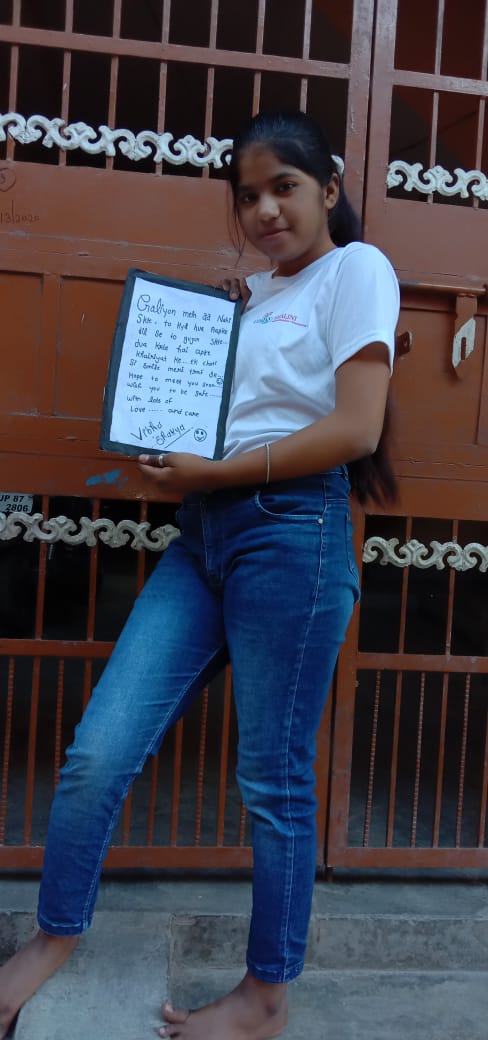 Galiyon meh aa Nahi
Skte, to Hyd hua Aapke
dil Se to gujar Skte...
dua Karte hai apke
Khairiyat Ke... ek choti
Si Smile meri taraf Se...
Hope to meet you soon
wish you to be safe.....
with lots of
Love ..... and care
Vibha
Shakya
13/2020
UP 87
2806